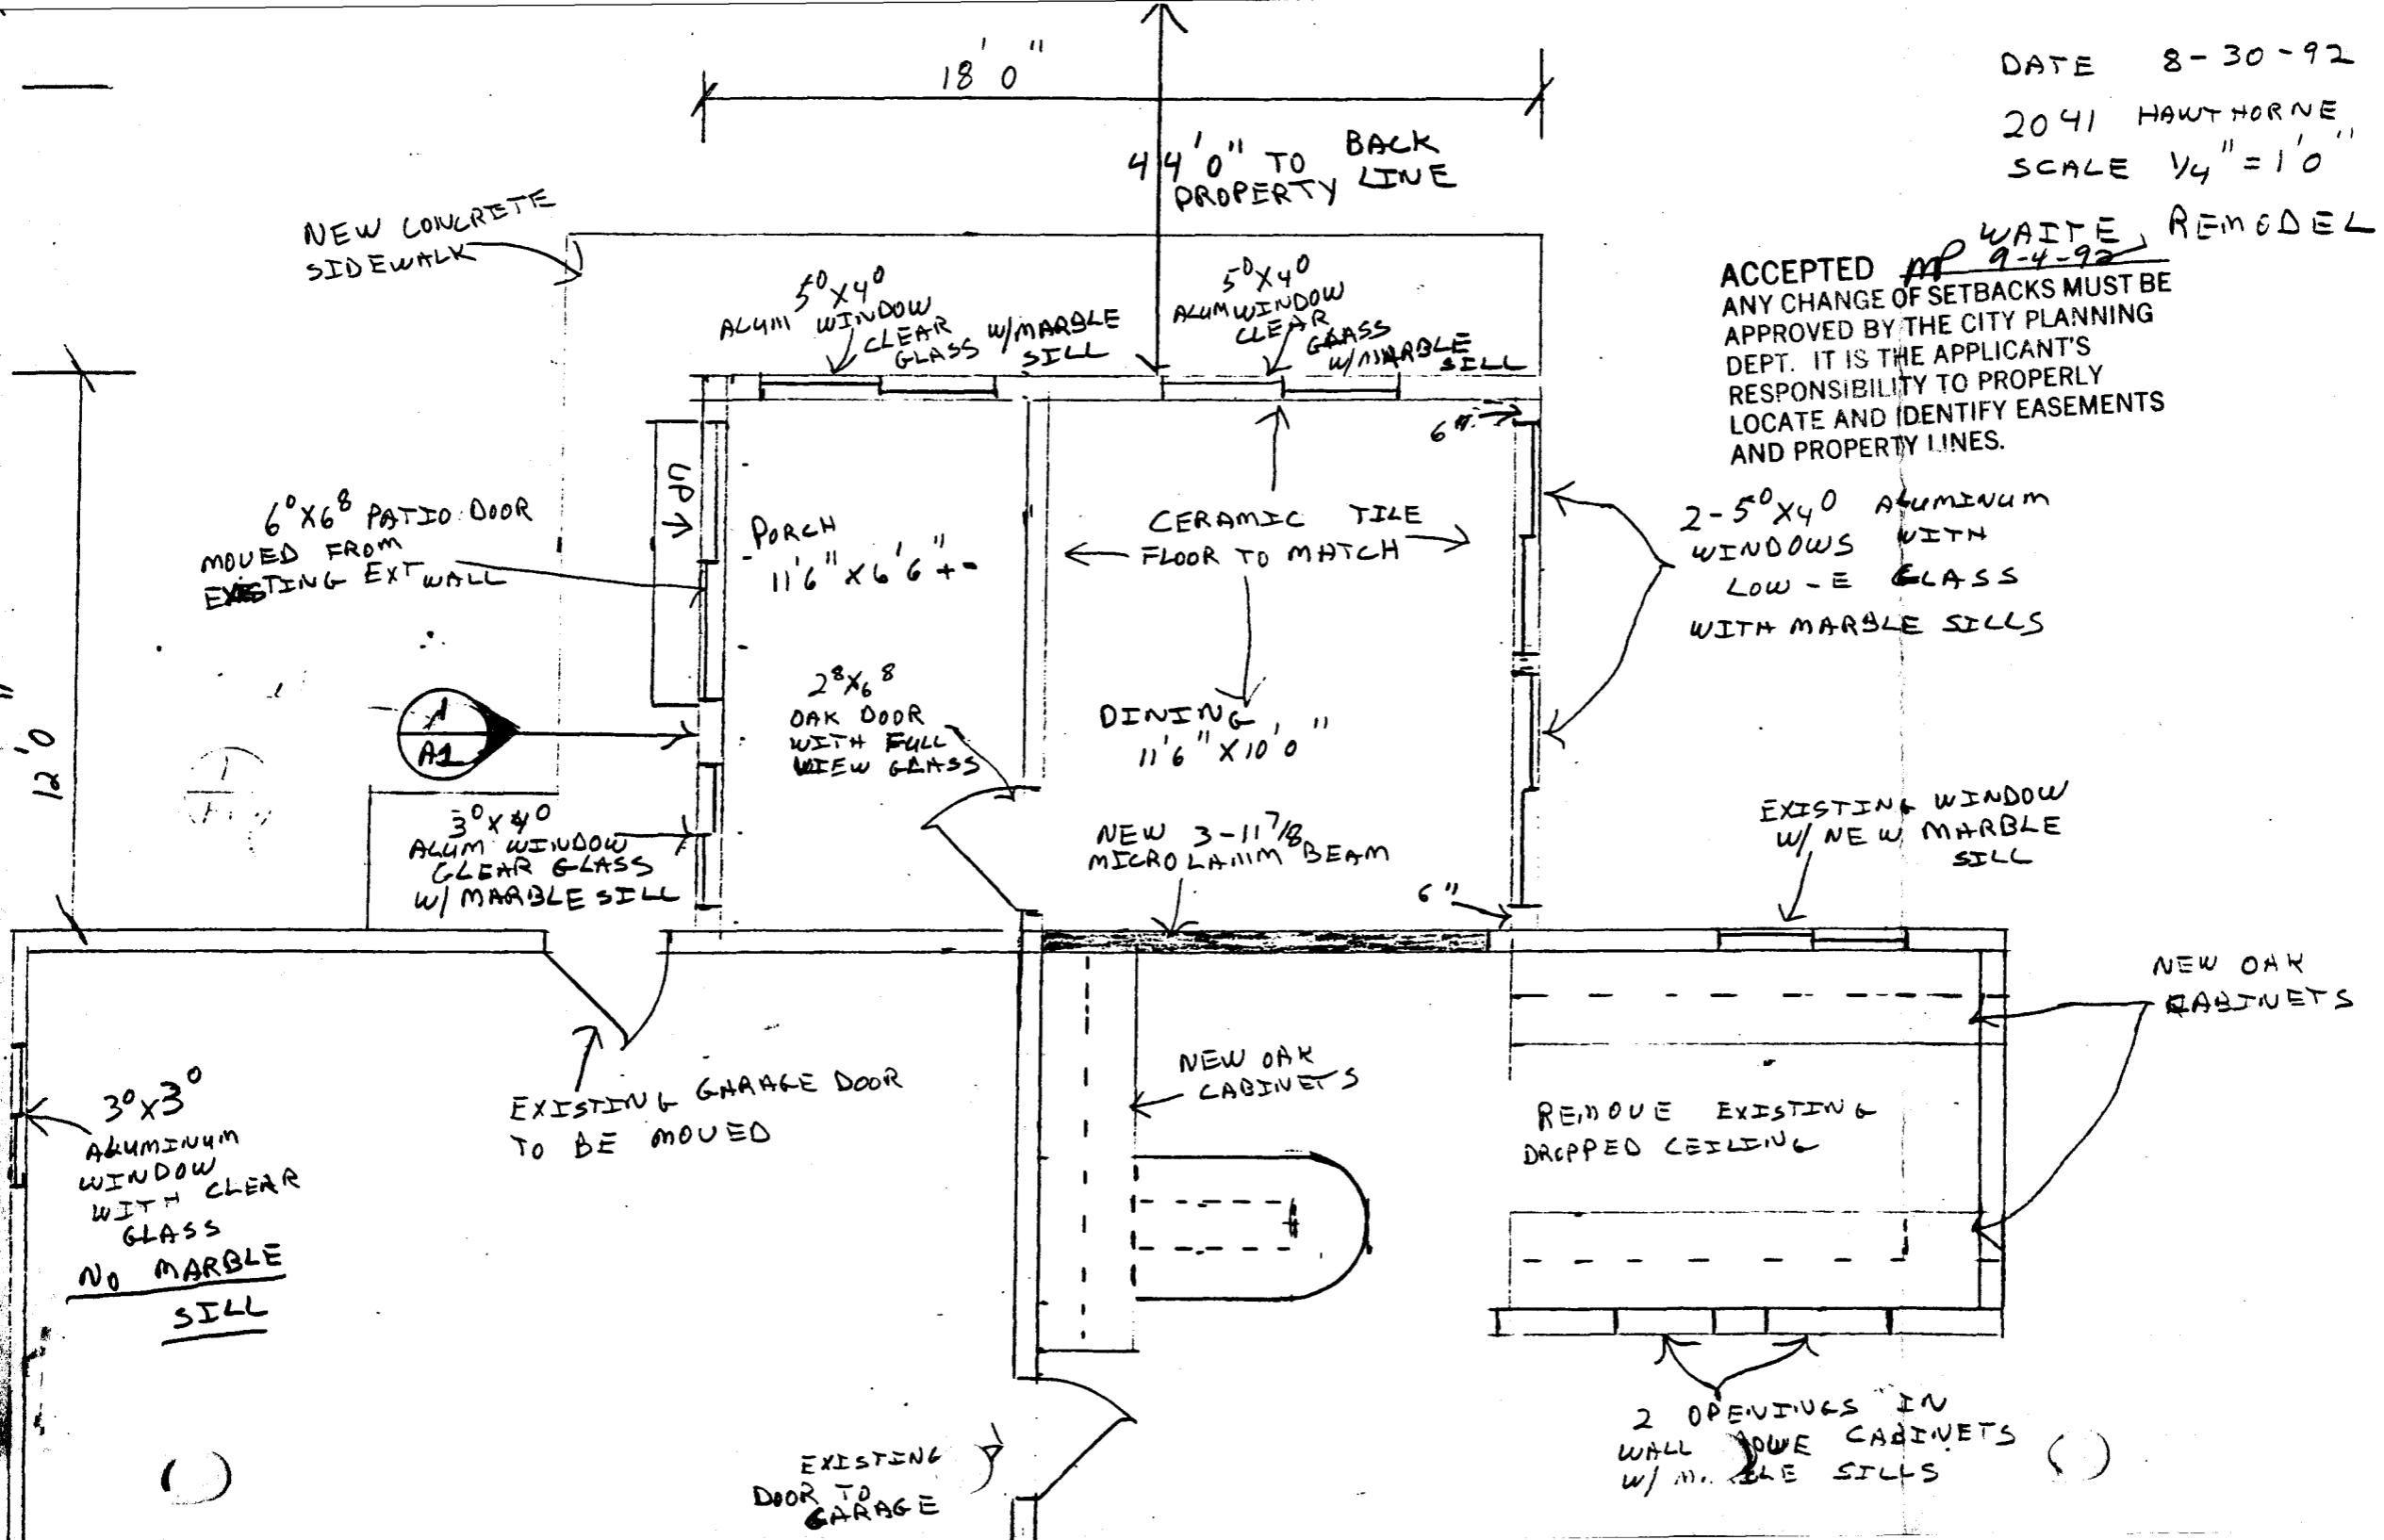 18'0"
DATE 8-30-92
2041 HAWTHORNE
SCALE 1/4" = 1'0"
WAITE REMODEL
44'0" TO BACK
PROPERTY LINE
ACCEPTED MP 9-4-92
ANY CHANGE OF SETBACKS MUST BE
APPROVED BY THE CITY PLANNING
DEPT. IT IS THE APPLICANT'S
RESPONSIBILITY TO PROPERLY
LOCATE AND IDENTIFY EASEMENTS
AND PROPERTY LINES.
NEW CONCRETE
SIDEWALK
5⁰X4⁰
ALUM WINDOW
CLEAR
GLASS W/MARBLE
SILL
5⁰X4⁰
ALUM WINDOW
CLEAR
GLASS
W/MARBLE
SILL
6"
UP
6⁰X6⁸ PATIO DOOR
MOVED FROM
EXISTING EXT WALL
PORCH
11'6" X 6'6" +-
CERAMIC TILE
FLOOR TO MATCH
2-5⁰X4⁰ ALUMINUM
WINDOWS WITH
LOW-E GLASS
WITH MARBLE SILLS
12'0"
1
A1
2⁸X6⁸
OAK DOOR
WITH FULL
VIEW GLASS
DINING
11'6" X 10'0"
3⁰X4⁰
ALUM WINDOW
CLEAR GLASS
W/ MARBLE SILL
NEW 3-11 7/8
MICROLAMM BEAM
6"
EXISTING WINDOW
W/ NEW MARBLE
SILL
NEW OAK
CABINETS
3⁰X3⁰
ALUMINUM
WINDOW
WITH CLEAR
GLASS
NO MARBLE
SILL
EXISTING GARAGE DOOR
TO BE MOVED
NEW OAK
CABINETS
REMOVE EXISTING
DROPPED CEILING
EXISTING
DOOR TO
GARAGE
2 OPENINGS IN
WALL CABINETS
W/ SILLS